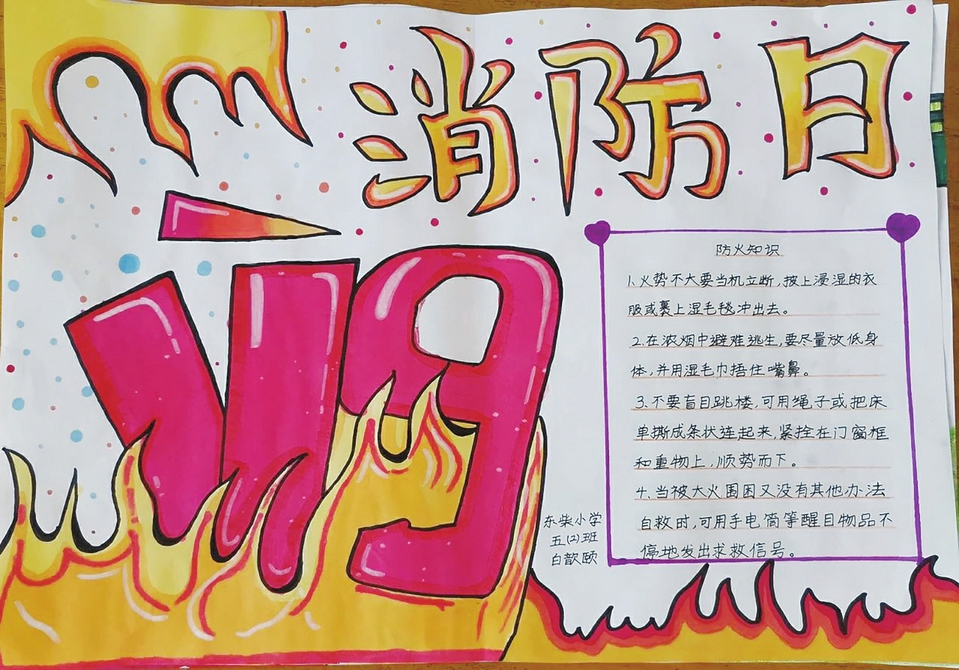 消防日
119
防火知识
1.火势不大要当机立断,披上浸湿的衣
服或裹上湿毛毯冲出去。
2.在浓烟中避难逃生,要尽量放低身
体,并用湿毛巾捂住嘴鼻。
3.不要盲目跳楼,可用绳子或把床
单撕成条状连起来,紧拴在门窗框
和重物上,顺势而下。
4、当被大火围困又没有其他办法
自救时,可用手电筒等醒目物品不
停地发出求救信号。
东柴小学
五(2)班
白歆颐